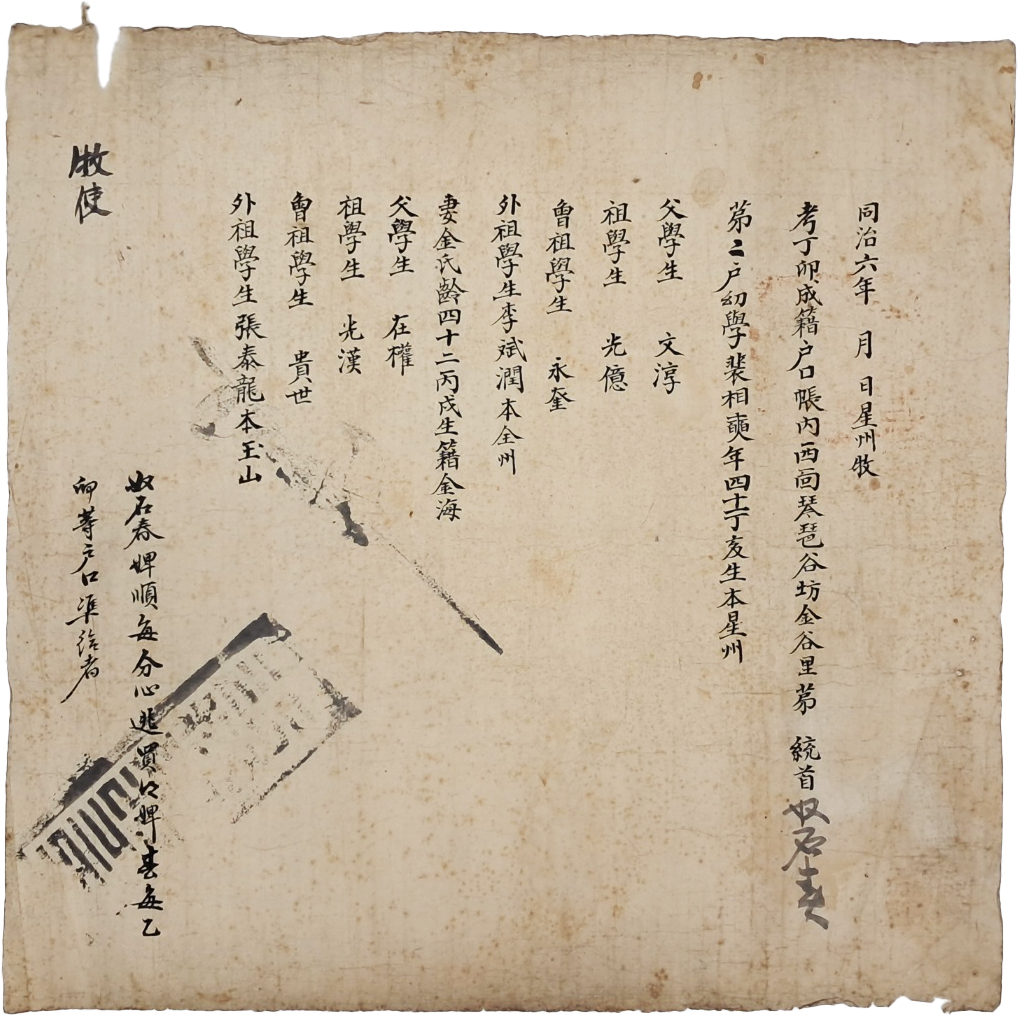 同治六年 月 日星州牧
考丁卯成籍户口帳内西面琴琶谷坊金谷里苐 統首奴石春
苐二户幼學裴相奭年四十一丁亥生本星州
父學生 文淳
祖學生 光億
曾祖學生 永奎
外祖學生李斌潤本全州
妻金氏齡四十二丙戌生籍金海
父學生 在權
祖學生 光漢
曾祖學生 貴世
外祖學生張泰龍本玉山
奴石春婢順每分心逃買口婢甚每乙
卯等户口準給者
牧使